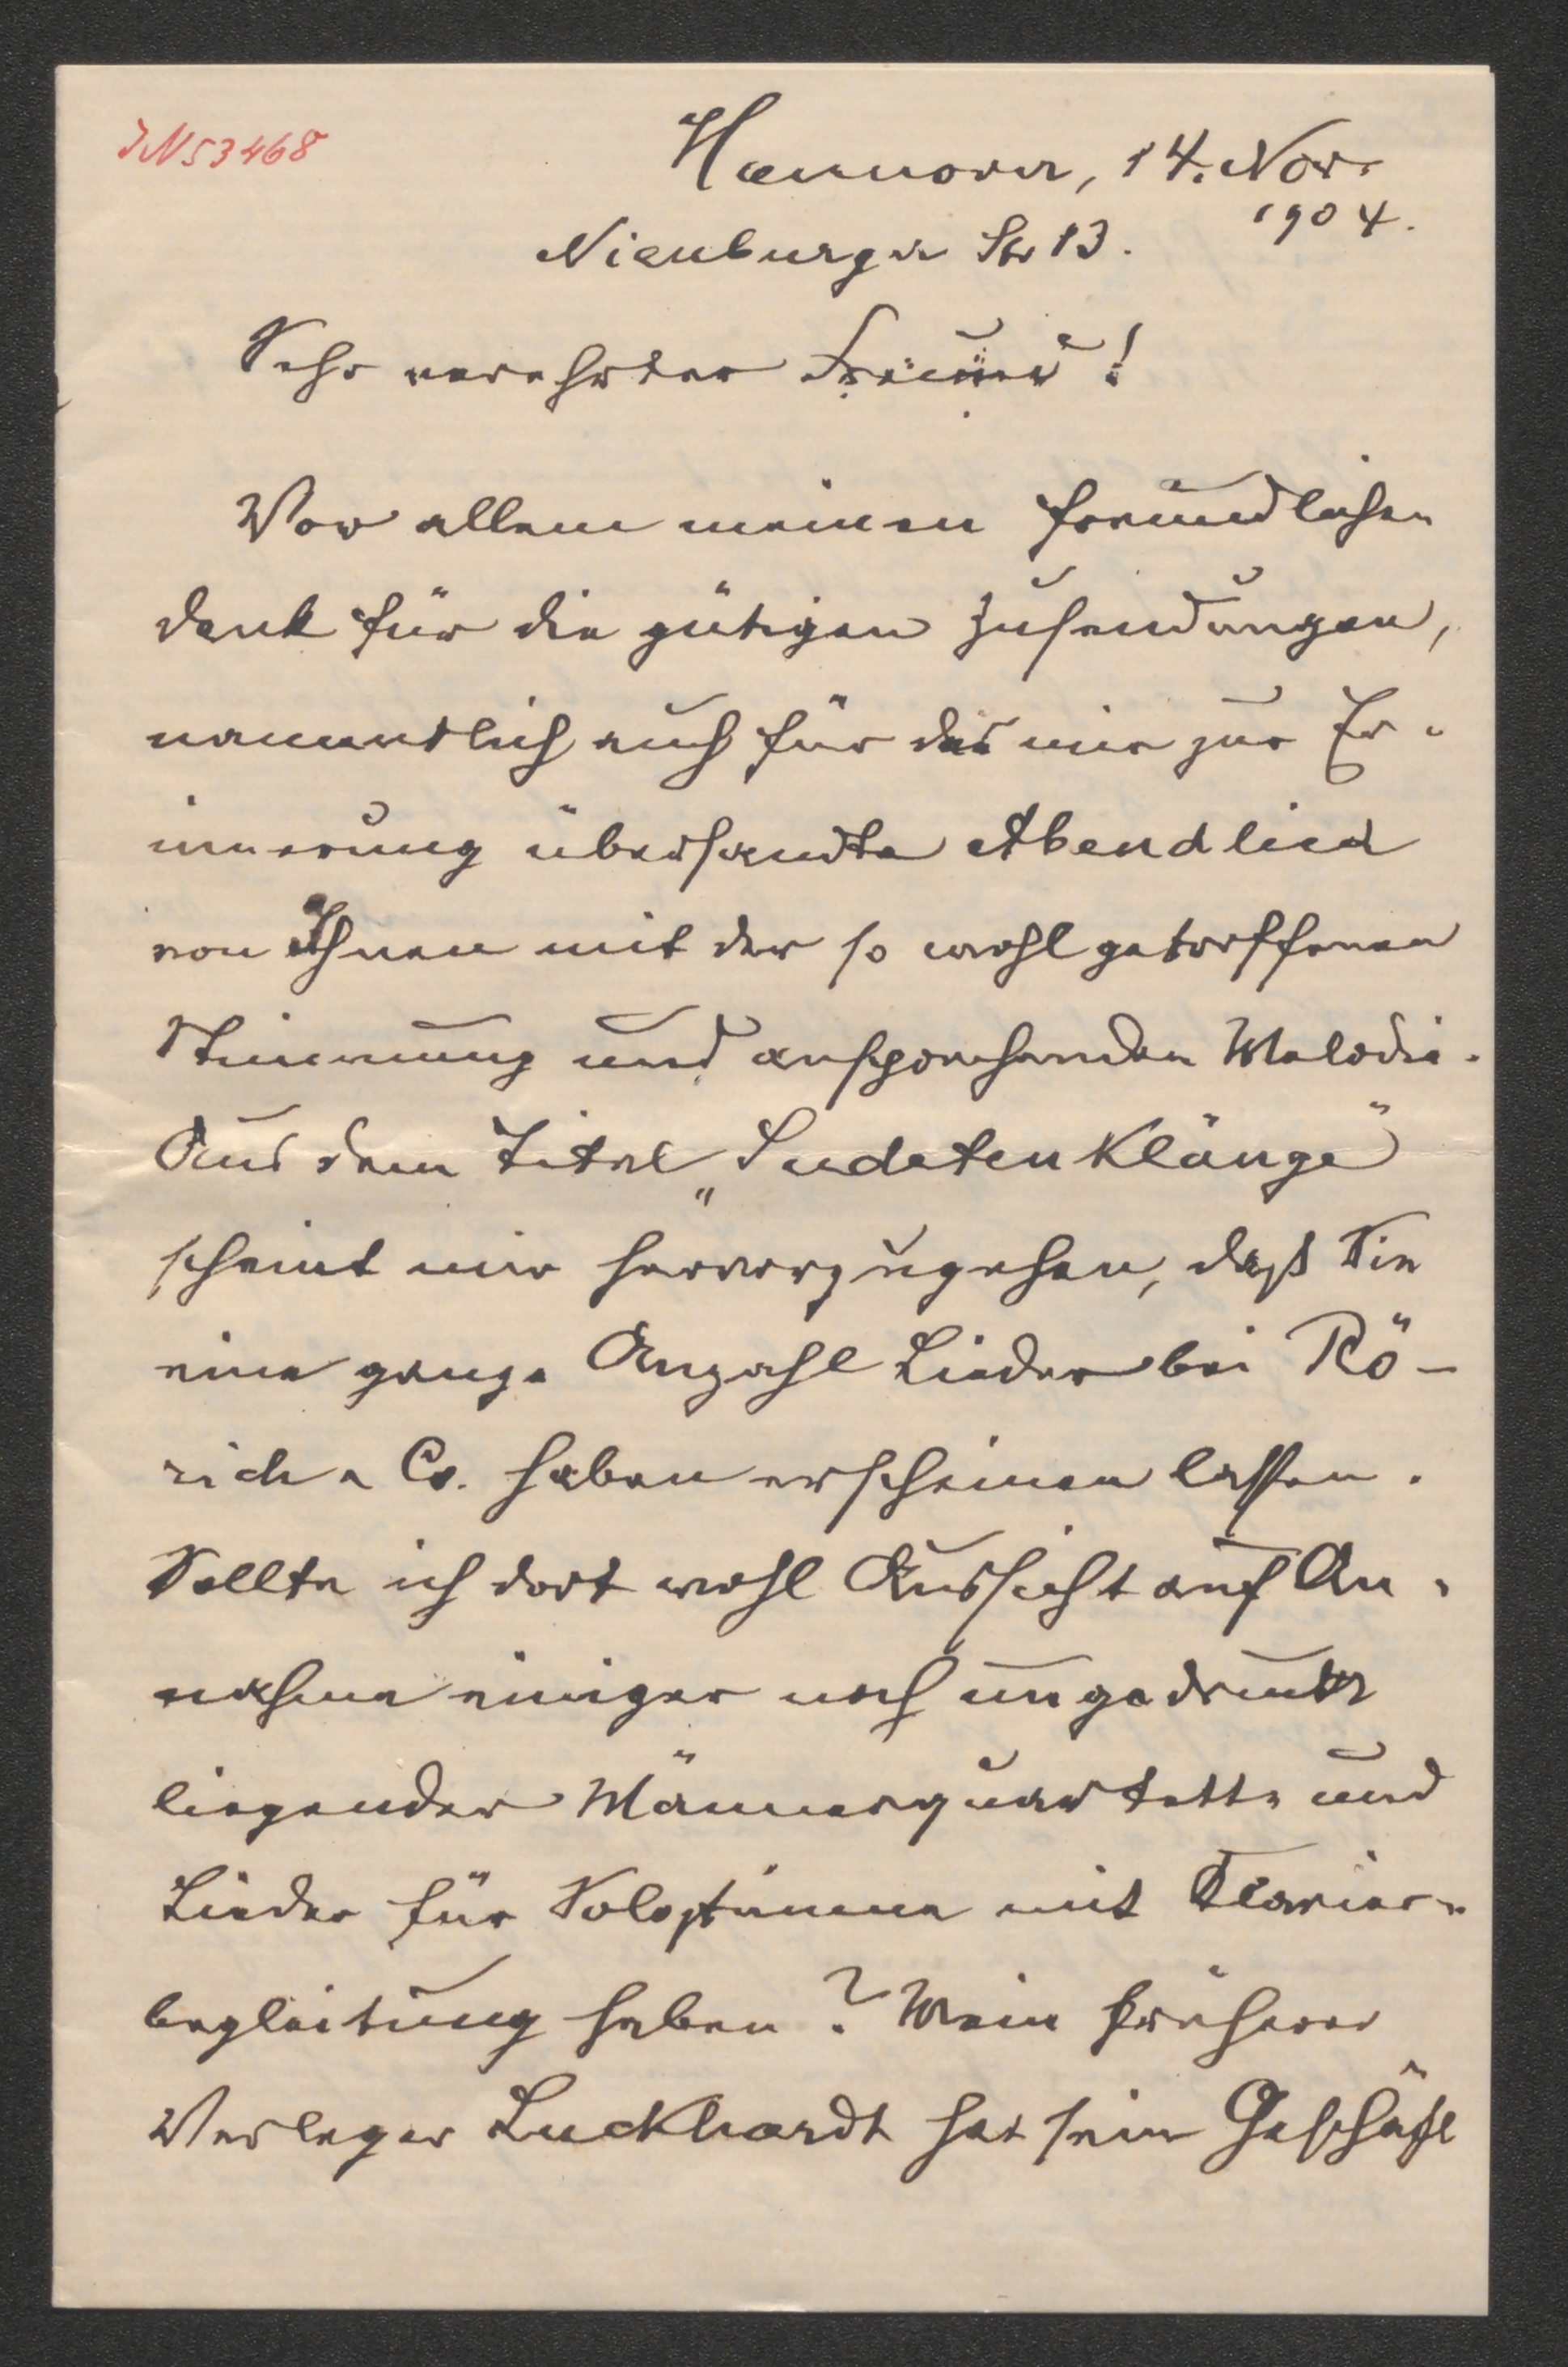 IN 53468
Hannover, 14. Nov.
1904.
Nienburger Str 13.
Sehr verehrter Freund!
Vor allem meinen freundlichen
Dank für die gütigen Zusendungen,
namentlich auch für das mir zur Er-
innerung übersandte Abendlied
von Ihnen mit der so wohl getroffenen
Stimmung und ansprechenden Melodie.
Aus dem Titel „Sudetenklänge"
scheint mir hervorzugehen, daß Sie
eine ganze Anzahl Lieder bei Rö-
rich & Co. haben erscheinen lassen.
Sollte ich dort wohl Aussicht auf An-
nahme einiger noch ungedruckt
liegender Männerquartette und
Lieder für Solostimme mit Klavier-
begleitung haben? Mein früherer
Verleger Luckhardt hat sein Geschäft